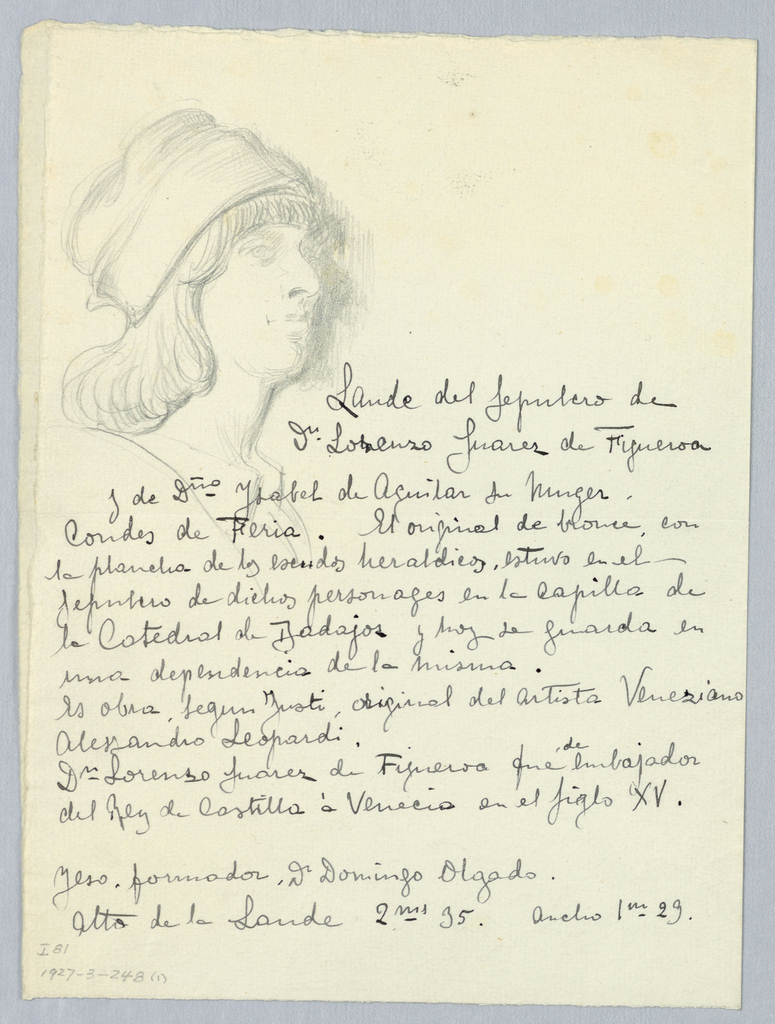 Laude del Sepulcro de
Dn Lorenzo Suarez de Figueroa
y de Dña Ysabel de Aguilar su Muger.
Condes de Feria. El original de bronce, con
la plancha de los escudos heraldicos, estuvo en el
Sepulcro de dichos personages en la Capilla de
la Catedral de Badajoz y hoy se guarda en
una dependencia de la misma.
Es obra, segun Justi, original del artista Veneziano
Alessandro Leopardi.
Dn Lorenzo Suarez de Figueroa fué de embajador
del Rey de Castilla à Venecia en el Siglo XV.
Yeso. formador, Dn Domingo Olgado.
Alto de la Laude 2 ms 35. Ancho 1 m 29.
I 81
1927-3-248 (1)